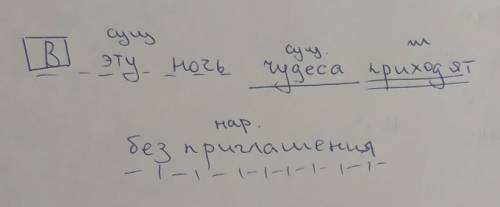 сущ сущ. гл
В эту ночь чудеса приходят
нар.
без приглашения